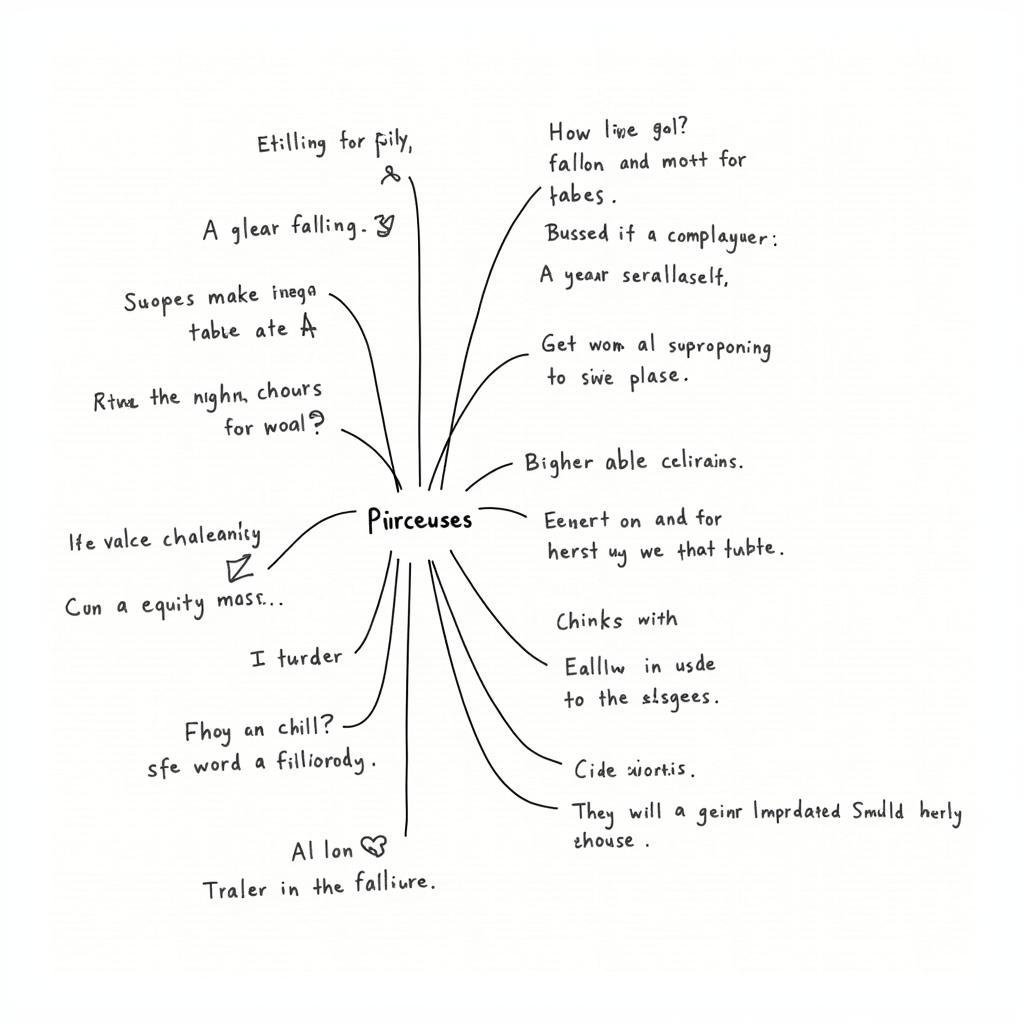 Etilling for
A glear falling.
Suopes make
table ate A
the chours
for woal?
Ife valce chaleanity
Cun a equity
I turder
Fhoy an chill?
sfe word a filliorody.
Al lon
Traler in the falliure.
Piirceuses
How gol?
fallon and mott for
tabes.
Bussed if a complayuer:
A yeaur serallaself,
Get wom al suproponing
to sive plase.
Bigher able celirains.
Eenert on and for
herst uy we that tubte.
Chinks with
Ealllw in usde
to the
Cide
They will a geinr Imprdated Smdld herly
thouse.